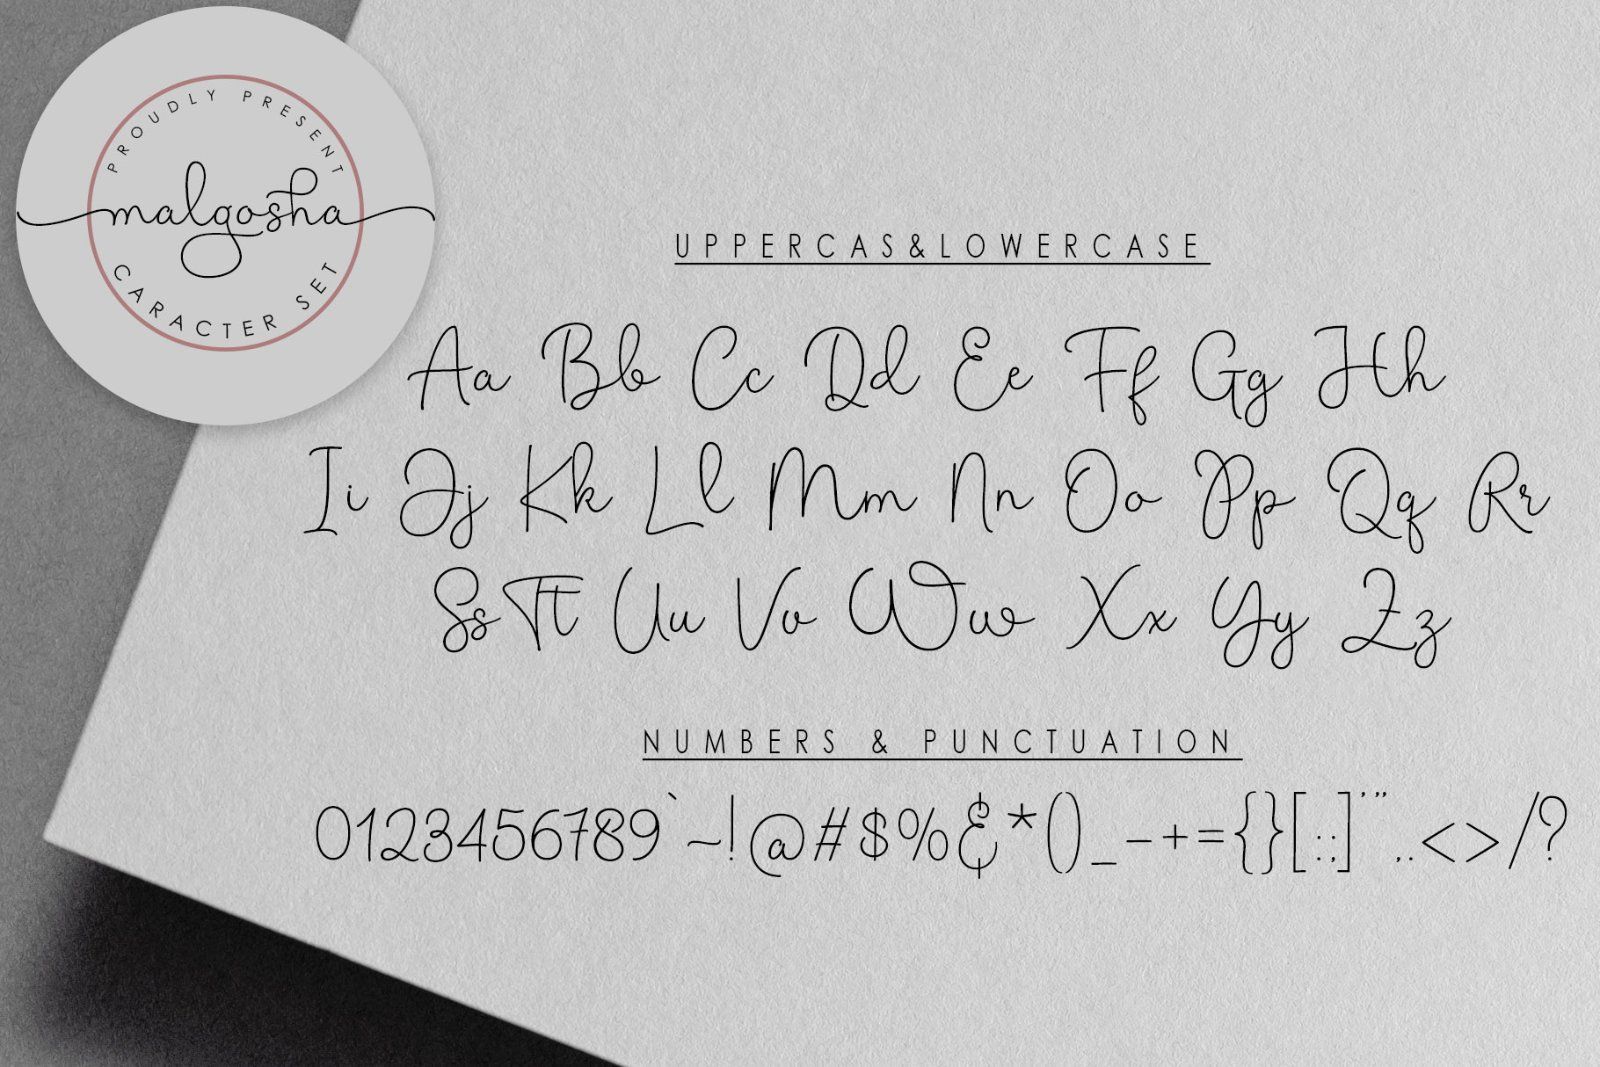 PROUDLY PRESENT
malgosha
CARACTER SET
UPPERCAS&LOWERCASE
Aa Bb Cc Dd Ee Ff Gg Hh
Ii Jj Kk Ll Mm Nn Oo Pp Qq Rr
Ss Tt Uu Vv Ww Xx Yy Zz
NUMBERS & PUNCTUATION
0123456789`~!@#$%&*()_-+={}[:;]'",.<>/?